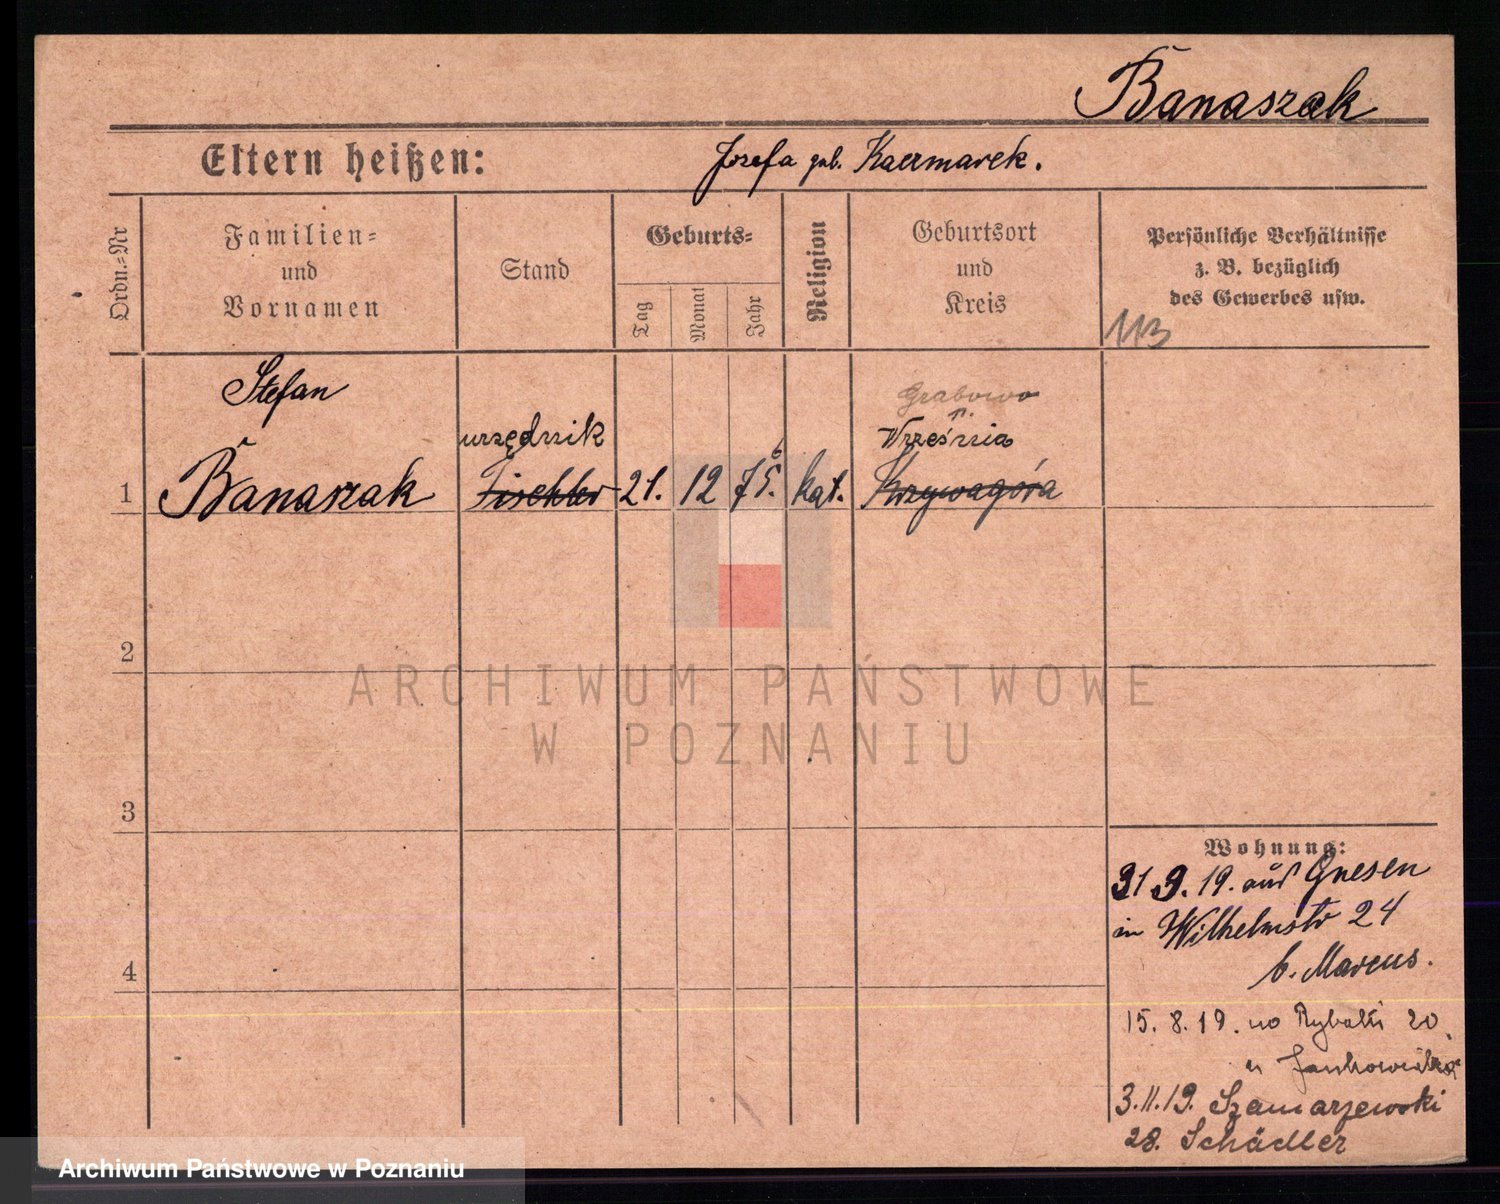 Banaszak
Eltern heißen: Jozefa geb. Kacrmarek.
Ordn.=Nr
Familien=
und
Vornamen
Stand
Geburts=
Tag
Monat
Jahr
Religion
Geburtsort
und
Kreis
Persönliche Verhältnisse
z. B. bezüglich
des Gewerbes usw.
113
Stefan
Grabowo
urzędnik
p. Września
1 Banaszak Tischler 21. 12 75. 6 kat. Krzywagóra
2
ARCHIWUM PAŃSTWOWE
W POZNANIU
3
Wohnung:
31 3. 19. aus Gnesen
in Wilhelmstr 24
b. Marcus.
4
15. 8. 19. na Rybaki 20
u Jankowiaka
3.11.19. Szamarzewski
28. Schädler
Archiwum Państwowe w Poznaniu